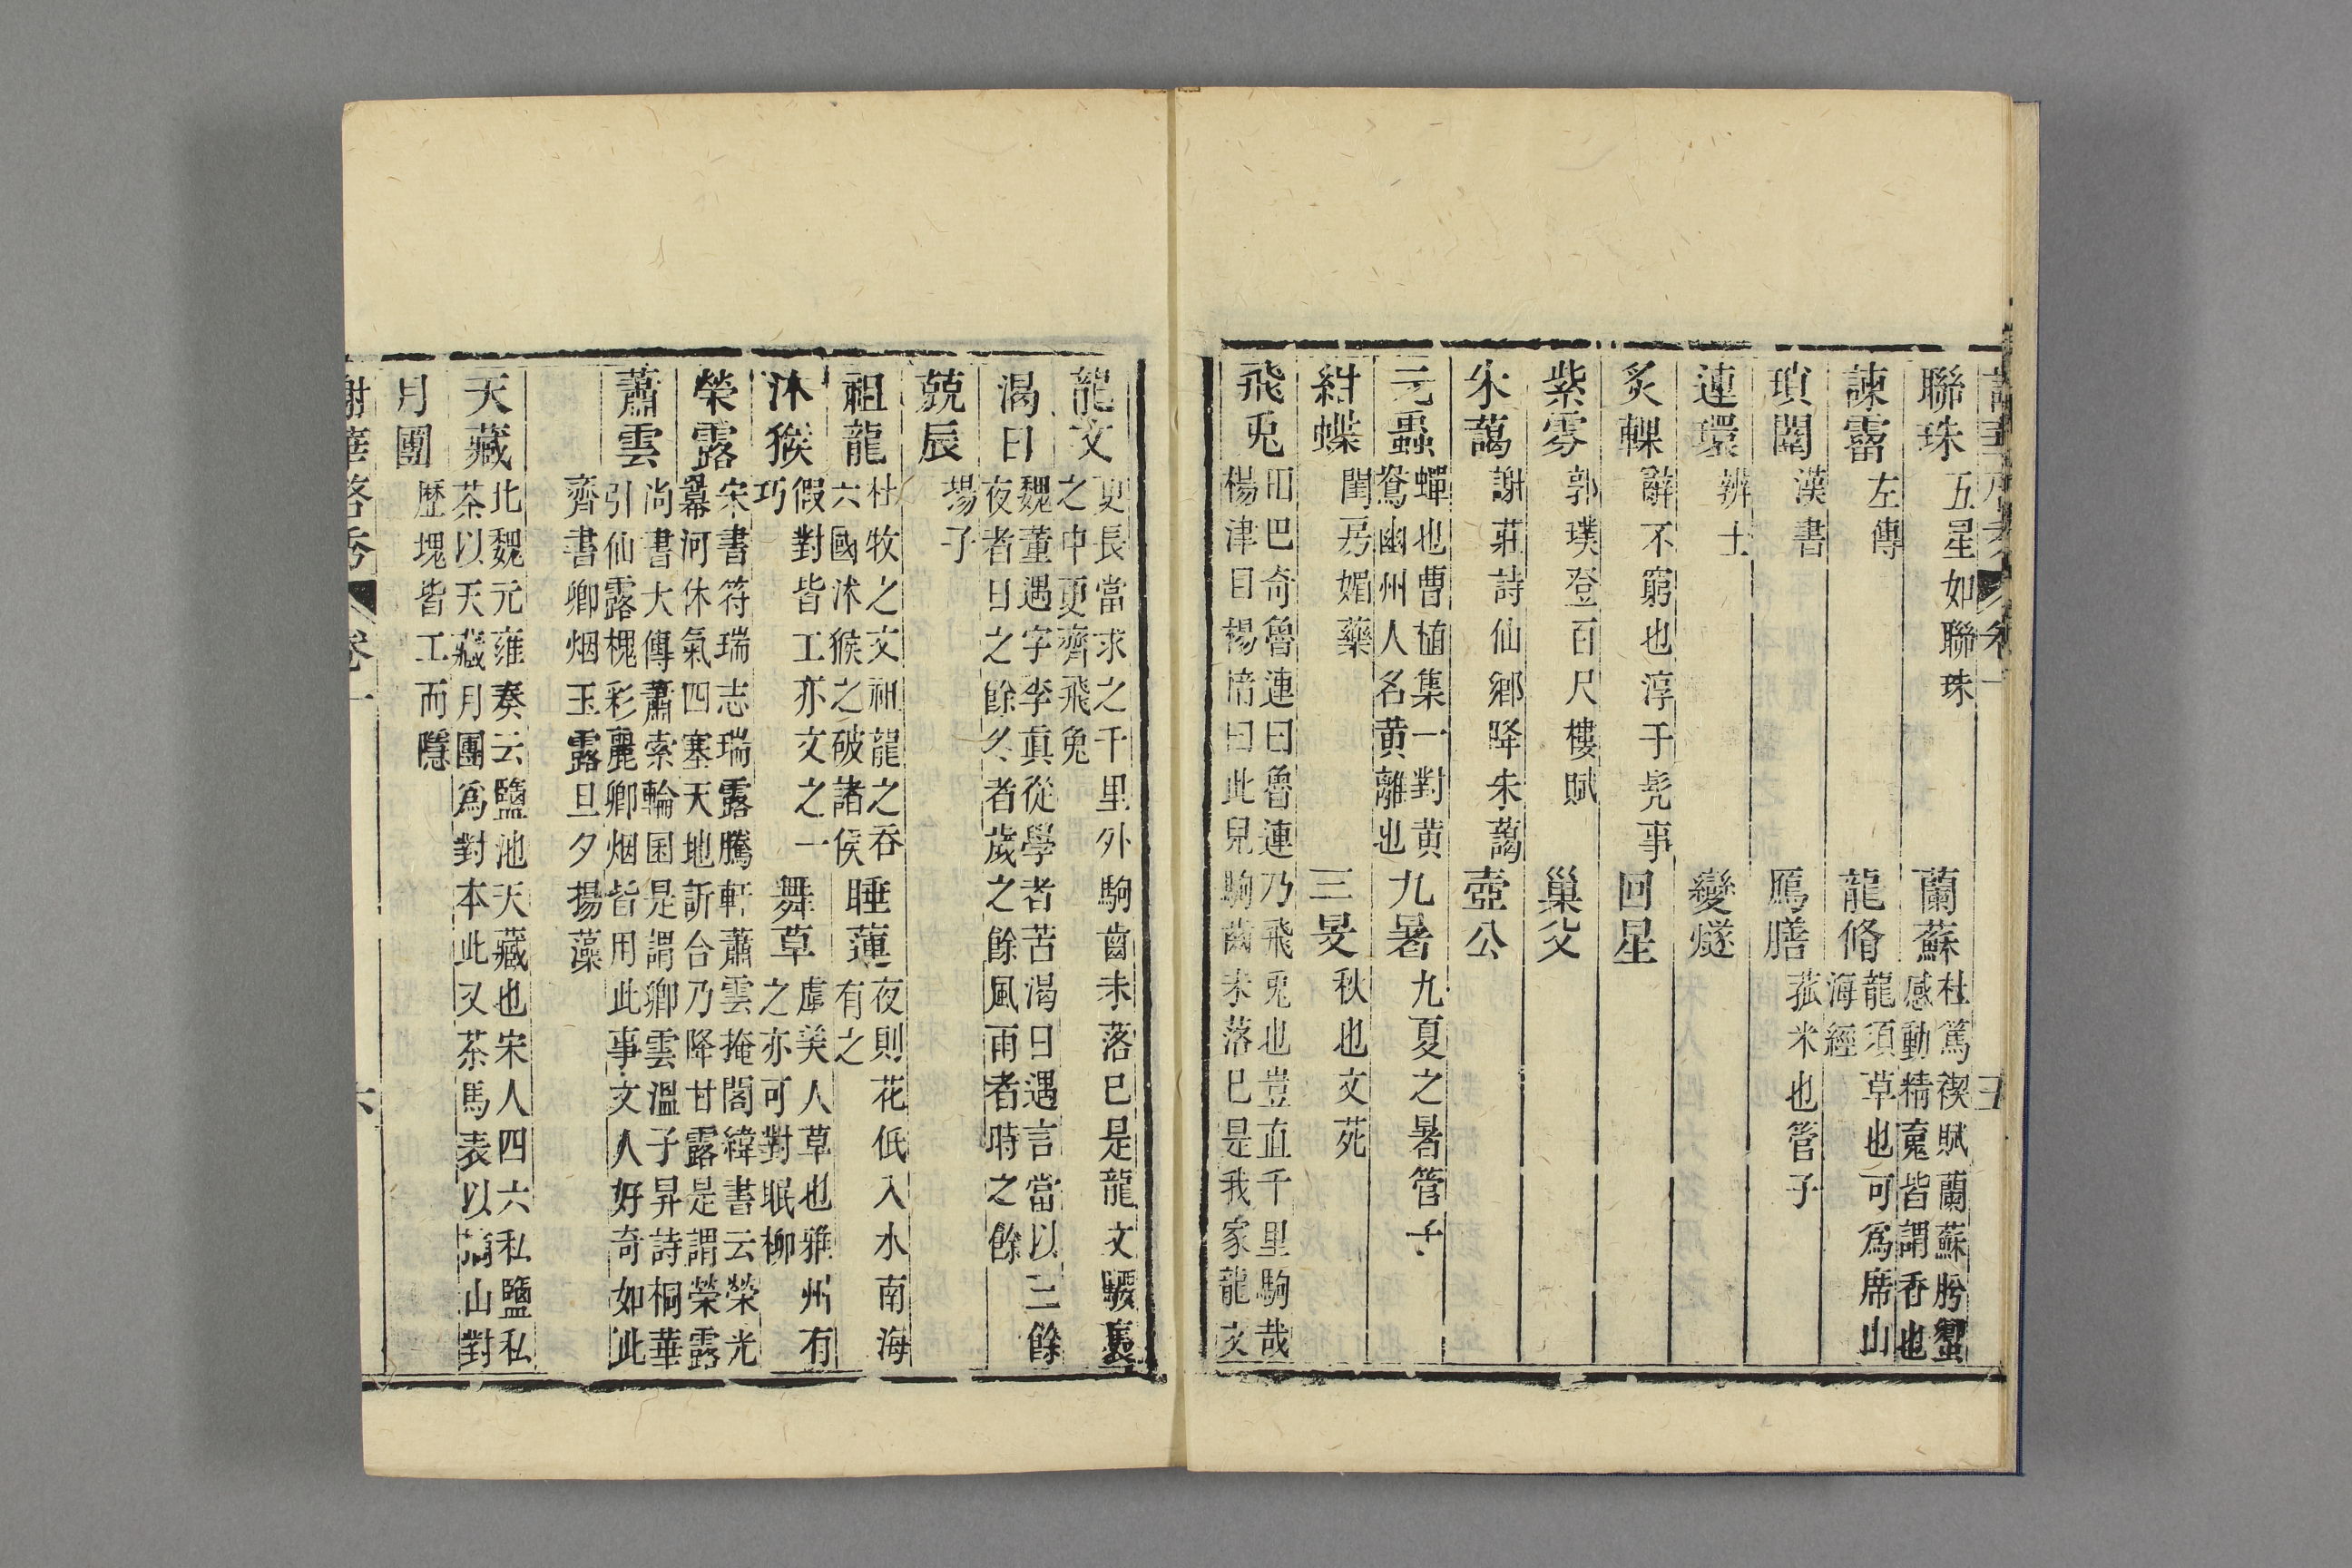 聯珠 五星如聯珠 蘭蘇 杜篤禊賦蘭蘇肹蠁感動精䰟皆謂香也
諫霤 左傳 龍脩 龍須草也可爲席山海經
瑣闥 漢書 鴈膳 菰米也管子
連環 辨士 變燧
炙輠 辭不窮也淳于髡事 回星
紫雰 郭璞登百尺樓賦 巢父
朱藹 謝莊詩仙鄉降朱藹 壺公
元蟲 蟬也曹植集一對黄鴛幽州人名黄離也 九暑 九夏之暑管子
紺蝶 閨房媚藥 三旻 秋也文苑
飛兎 田巴奇魯連曰魯連乃飛兎也豈直千里駒哉楊津目楊愔曰此兒駒齒未落已是我家龍文
龍文 更長當求之千里外駒齒未落已是龍文驥裹之中更齊飛兔
渴日 魏董遇字季真從學者苦渴日遇言當以三餘夜者日之餘冬者歲之餘風雨者時之餘
兢辰 場子
祖龍 杜牧之文祖龍之吞六國沐猴之破諸侯 睡蓮 夜則花低入水南海有之
沐猴 假對皆工亦文之一巧 舞草 虞美人草也雅州有之亦可對眠柳
榮露 宋書符瑞志瑞露騰軒蕭雲掩閣緯書云榮光羃河休氣四塞天地訢合乃降甘露是謂榮露
蕭雲 尚書大傳蕭索輪囷是謂卿雲溫子昇詩桐華引仙露槐彩麗卿烟皆用此事文人好奇如此
齊書卿烟玉露旦夕揚藻
天藏 北魏元雍奏云鹽池天藏也宋人四六私鹽私茶以天藏月團爲對本此又茶馬表以摘山對
月團 歷塊皆工而隱
謝華啓秀 卷一 六